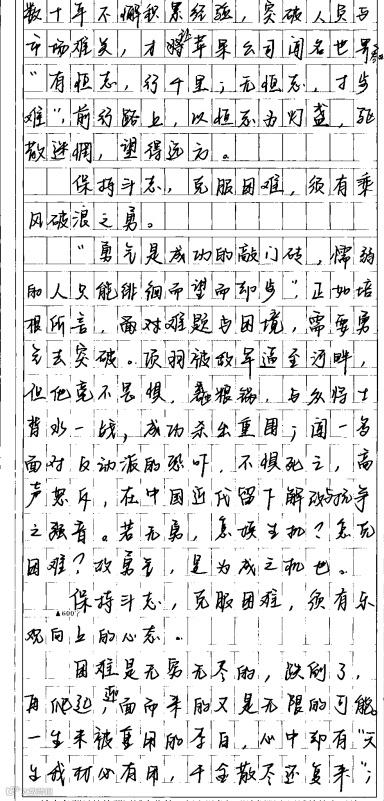 数十年不懈积累经验，突破人员与
市场难关，才将苹果公司闻名世界。
“有恒志，行千里；无恒志，寸步
难”，前行路上，以恒志为灯盏，驱
散迷惘，望得远方。
保持斗志，克服困难，须有乘
风破浪之勇。
“勇气是成功的敲门砖，懦弱
的人只能徘徊而望而却步”，正如培
根所言，面对难题与困境，需要勇
气去突破。项羽被敌军逼至河畔，
但他竟不畏惧，砸粮锅，与众将士
背水一战，成功杀出重围；闻一多
面对反动派的恐吓，不惧死亡，高
声怒斥，在中国近代留下解放与抗争
之强音。若无勇，怎候生机？怎克
困难？故勇气，是为成之机也。
保持斗志，克服困难，须有乐
▲600字
观向上的心态。
困难是无穷无尽的，跌倒了，
再爬起，迎面而来的又是无限的可能。
一生未被重用的李白，心中却有“天
生我材必有用，千金散尽还复来”；